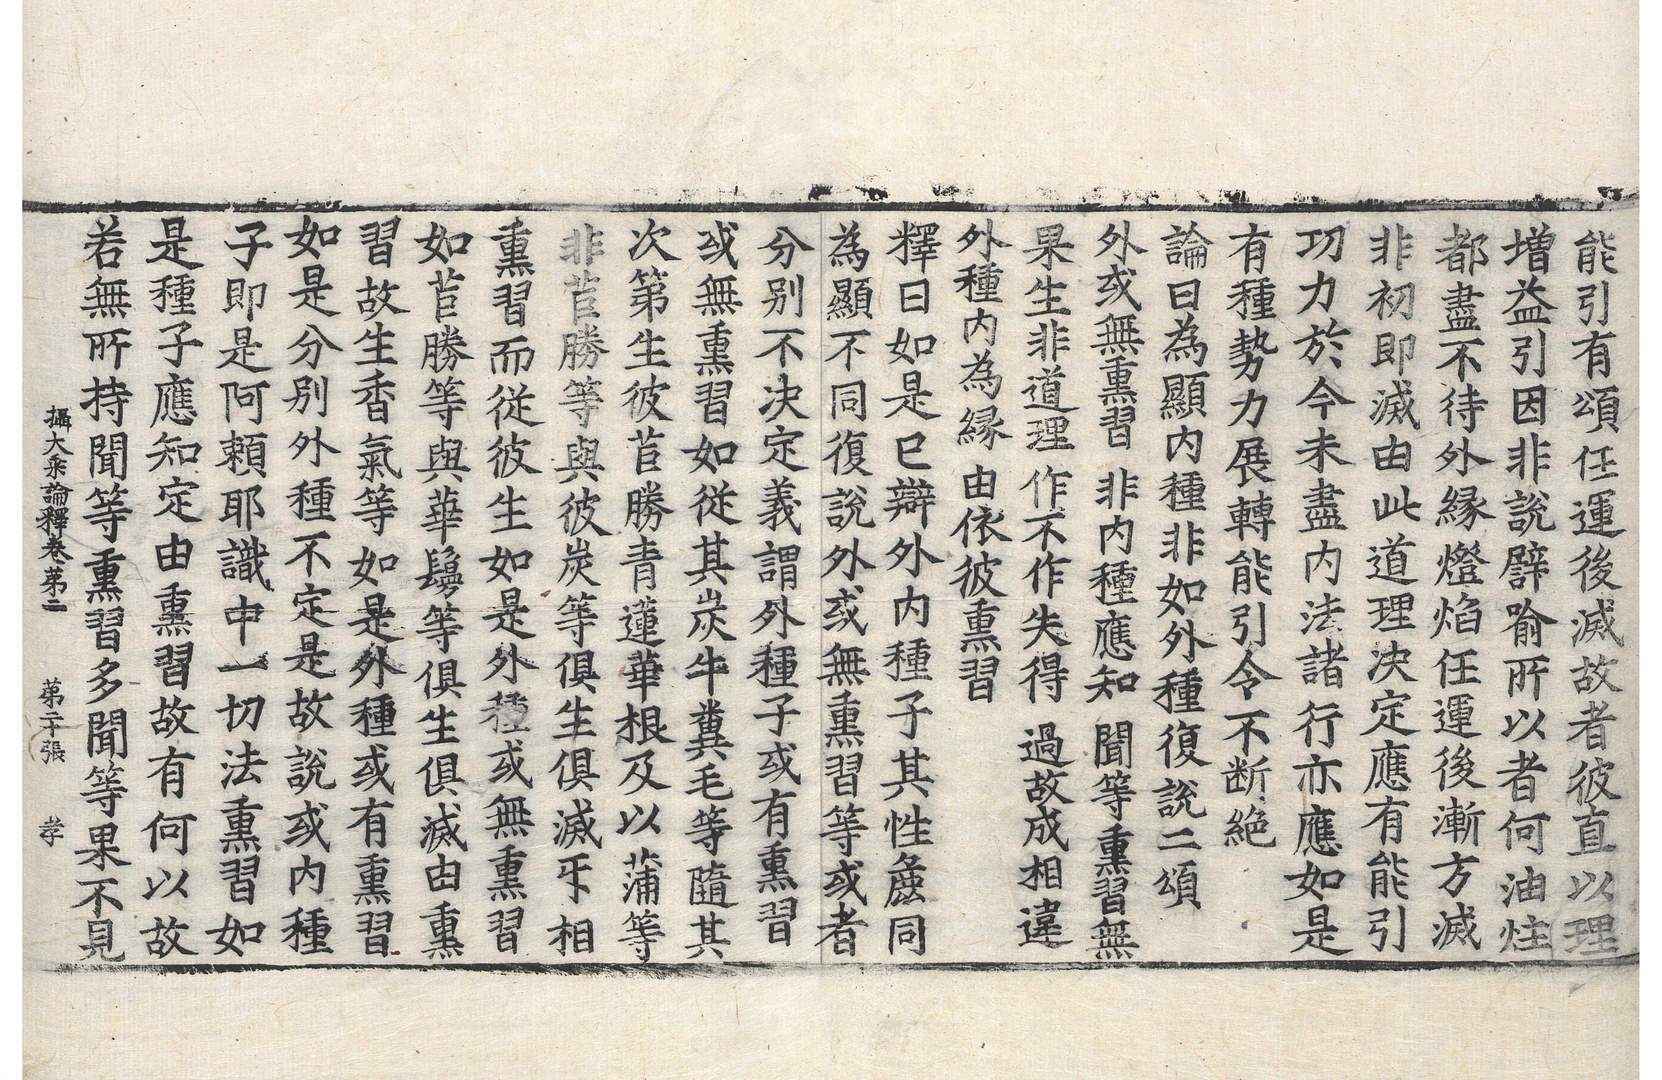 能引有頌任運後滅故者彼直以理
增益引因非說譬喻所以者何油炷
都盡不待外緣燈焰任運後漸方滅
非初即滅由此道理決定應有能引
功力於今未盡內法諸行亦應如是
有種勢力展轉能引令不断絶
論曰為顯內種非如外種復說二頌
外或無熏習 非內種應知 聞等熏習無
果生非道理 作不作失得 過故成相違
外種內為緣 由依彼熏習
釋曰如是已辯外內種子其性麁同
為顯不同復說外或無熏習等或者
分別不決定義謂外種子或有熏習
或無熏習如從其炭牛糞毛等隨其
次第生彼苣勝青蓮華根及以蒲等
非苣勝等與彼炭等俱生俱滅互相
熏習而從彼生如是外種或無熏習
如苣勝等與華鬘等俱生俱滅由熏
習故生香氣等如是外種或有熏習
如是分別外種不定是故說或內種
子即是阿賴耶識中一切法熏習如
是種子應知定由熏習故有何以故
若無所持聞等熏習多聞等果不見
攝大乘論釋卷第二 第二十張 孝